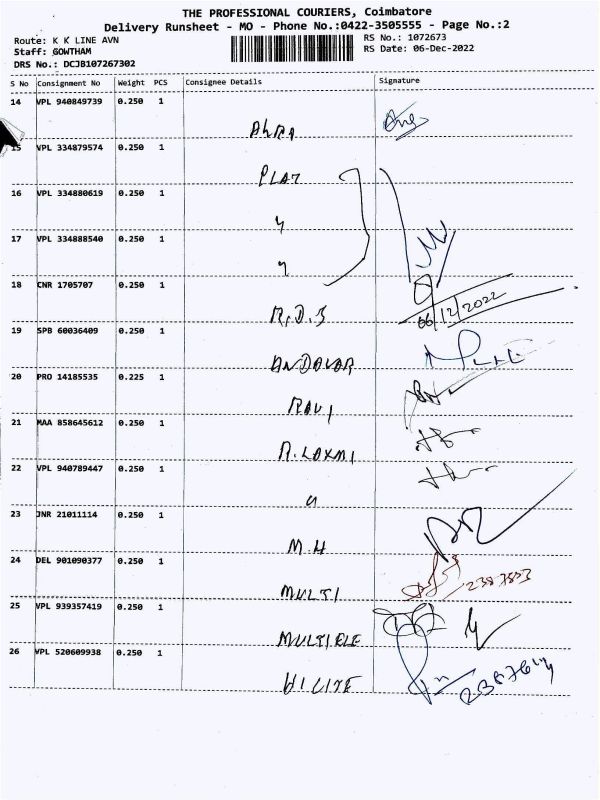 THE PROFESSIONAL COURIERS, Coimbatore
Delivery Runsheet - MO - Phone No.:0422-3505555 - Page No.:2
Route: K K LINE AVN
Staff: GOWTHAM
DRS No.: DCJB107267302
RS No.: 1072673
RS Date: 06-Dec-2022
S No Consignment No Weight PCS Consignee Details Signature
14 VPL 940849739 0.250 1
15 VPL 334879574 0.250 1
PLAT
16 VPL 334880619 0.250 1
17 VPL 334888540 0.250 1
18 CNR 1705707 0.250 1
R.D.S
06/12/2022
19 SPB 60036409 0.250 1
ANDAVAR
20 PRO 14185535 0.225 1
RAVI
21 MAA 858645612 0.250 1
R.LAXMI
22 VPL 940789447 0.250 1
23 JNR 21011114 0.250 1
M.H
24 DEL 901090377 0.250 1
MULTI
25 VPL 939357419 0.250 1
MULTIPLE
26 VPL 520609938 0.250 1
HILITE